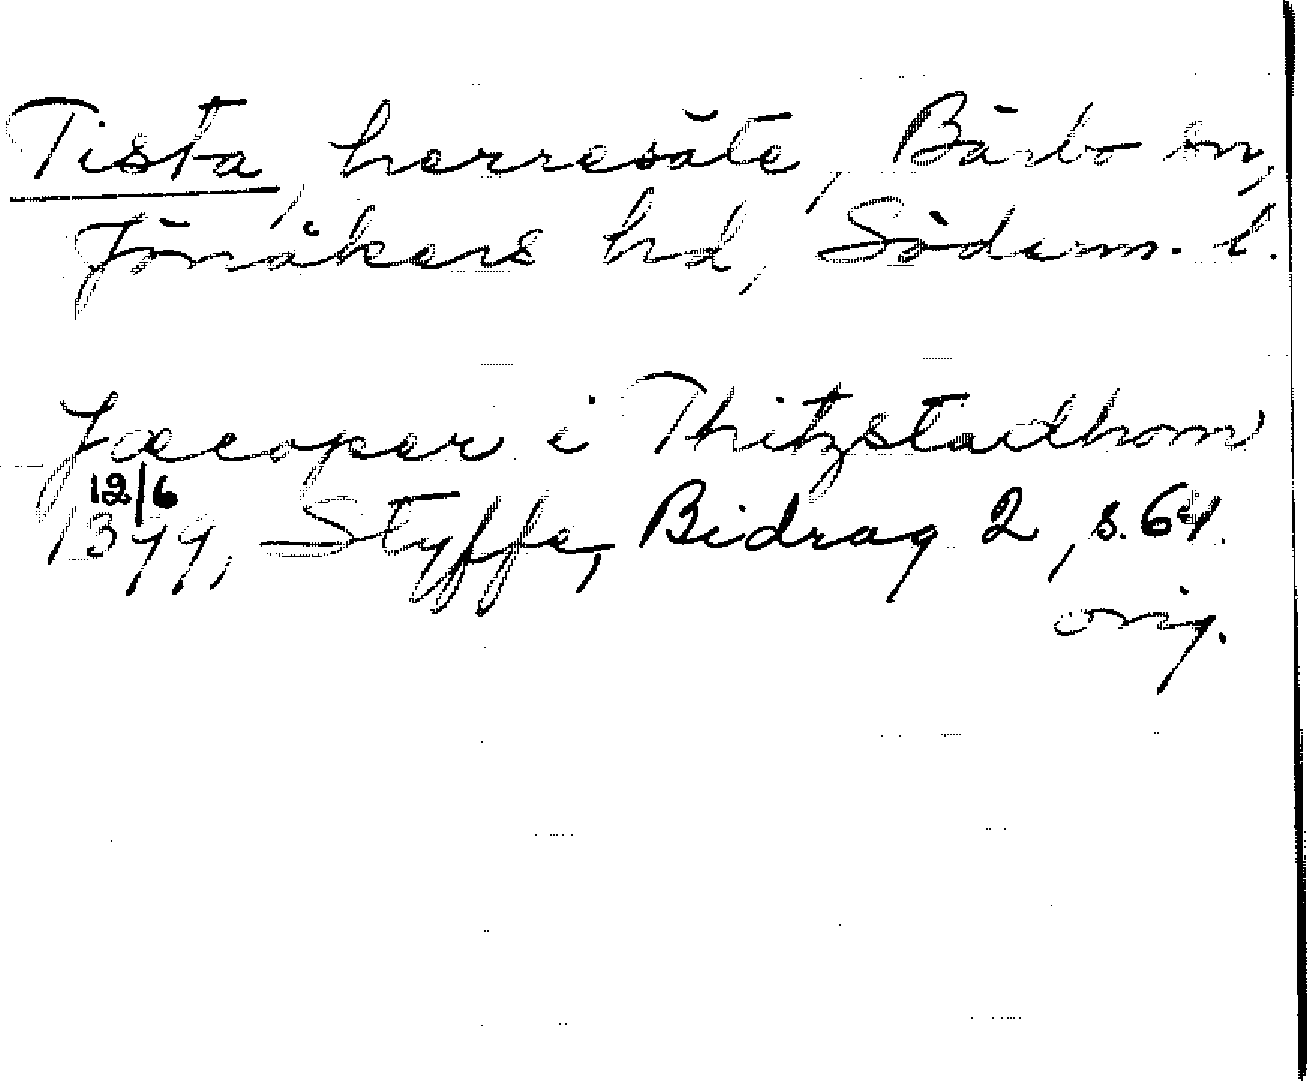 Tista, herresäte, Bärbo sn,
Jönåkers hd, Söderm. l.
Jæcoper i Thitzstadhom
12/6
1399, Styffe, Bidrag 2, s. 64.
orig.